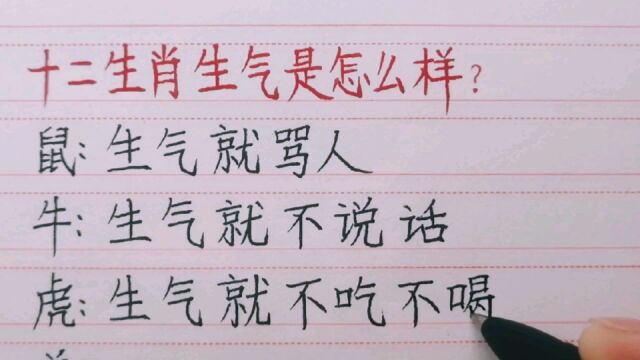 十二生肖生气是怎么样?
鼠:生气就骂人
牛:生气就不说话
虎:生气就不吃不喝